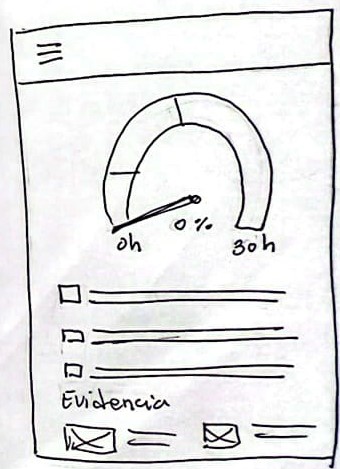 0%
0h 30h
Evidencia